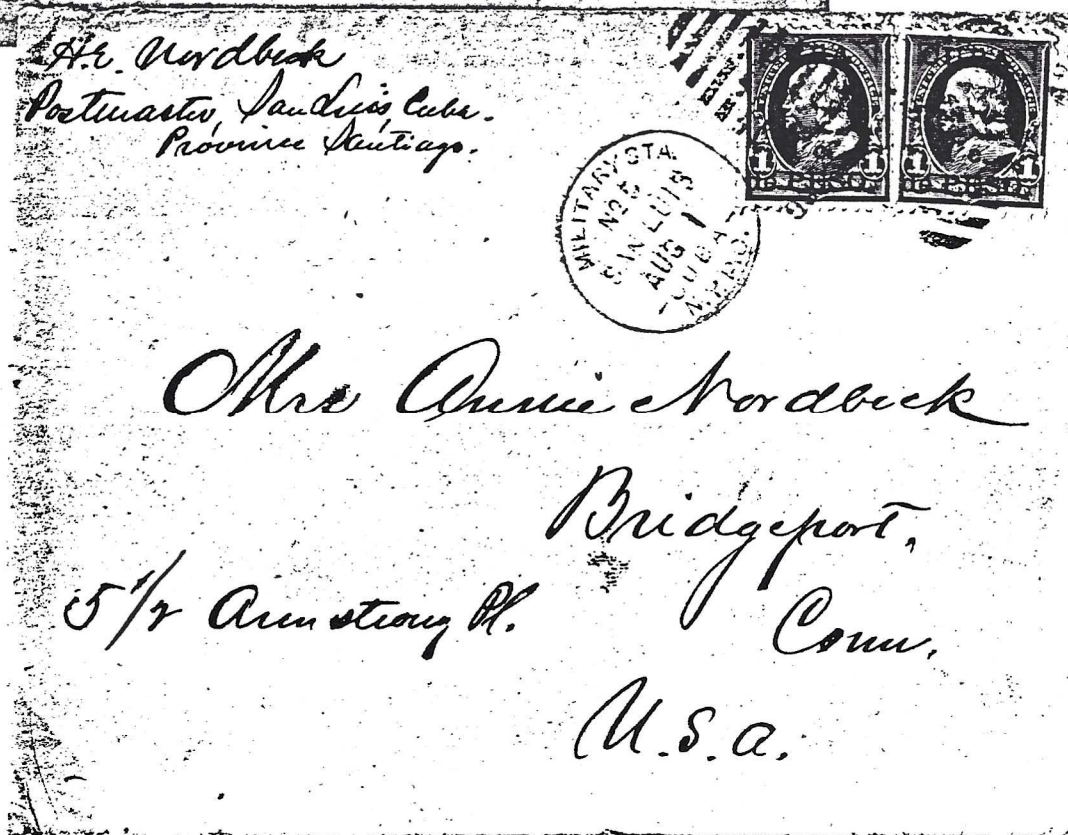 H.E. Nordbeck
Postmaster, San Luis, Cuba.
Province Santiago.
MILITARY STA.
No 5
SAN LUIS
AUG 1
CUBA
N.Y.P.O.
1 1
1 1
Mrs Annie Nordbeck
Bridgeport,
5 1/2 Armstrong Pl.
Conn.
U.S.A.